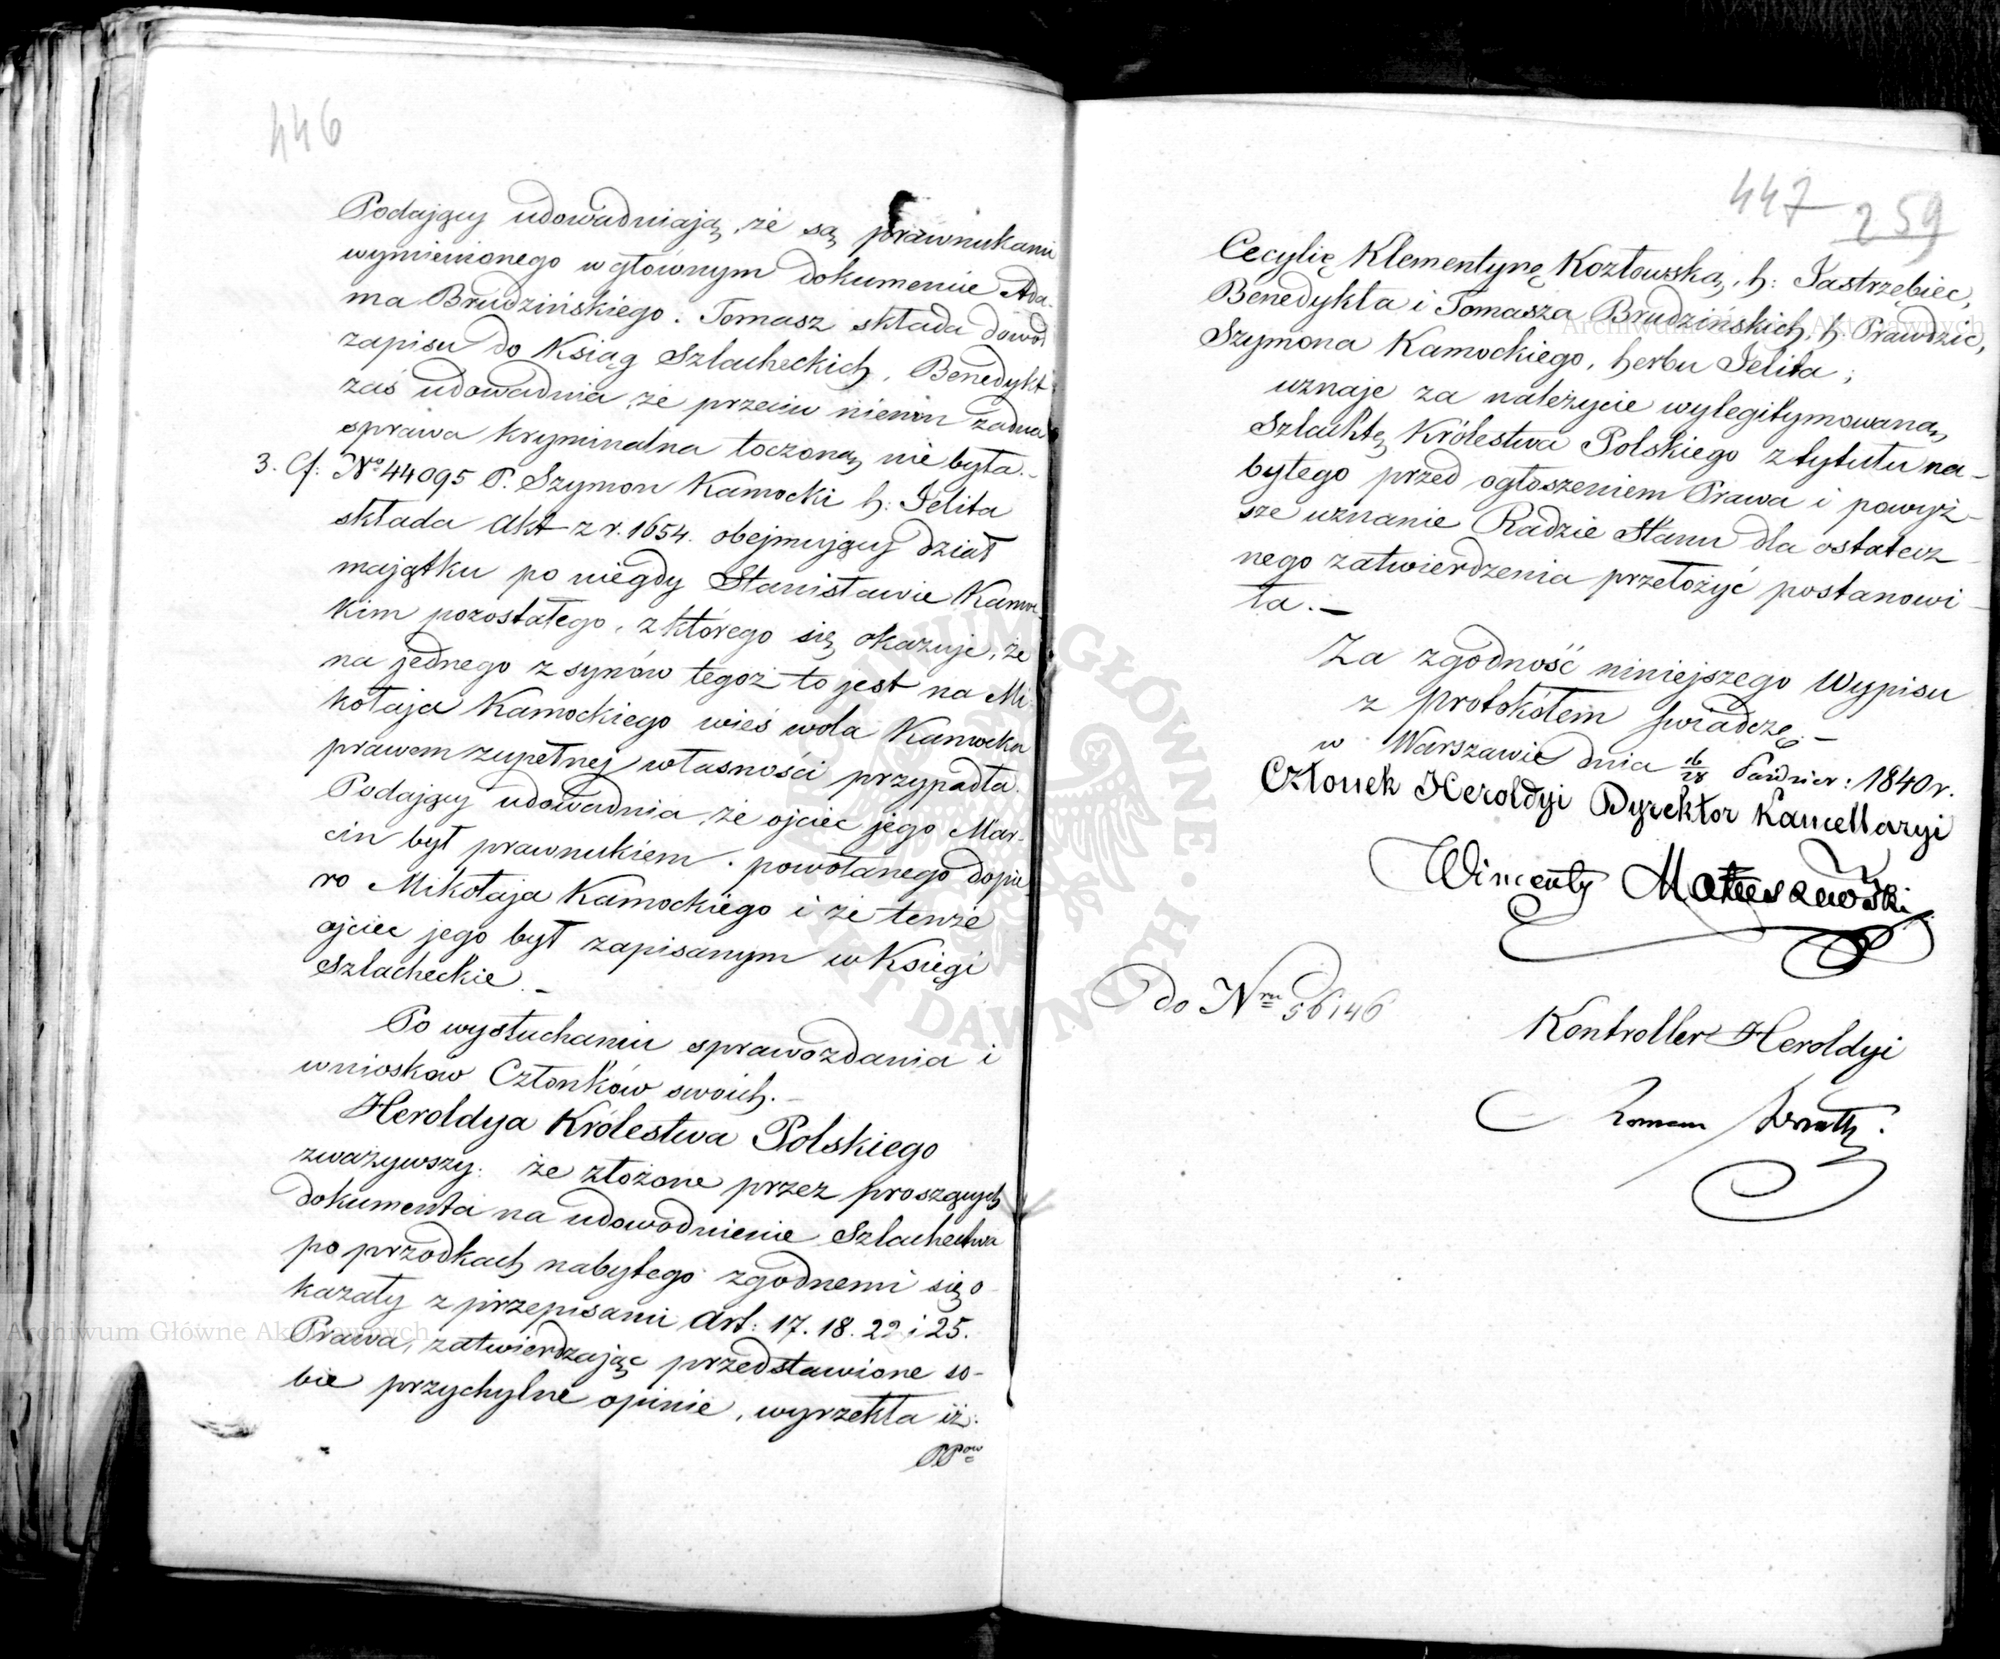 446
Podający udowadniają, że są prawnukami
wymienionego w głównym dokumencie Ada-
ma Brudzińskiego. Tomasz składa dowód
zapisu do Ksiąg Szlacheckich, Benedykt
zaś udowadnia, że przeciw niemu żadna
sprawa kryminalna toczoną nie była.-
3. Cf: No 44095 P. Szymon Kamocki h: Jelita
składa Akt z r. 1654. obejmujący dział
majątku po niegdy Stanisławie Kamoc-
kim pozostałego, z którego się okazuje, że
na jednego z synów tegoż to jest na Mi-
kołaja Kamockiego wieś wola Kamocka
prawem zupełnej własności przypadła.
Podający udowadnia, że ojciec jego Mar-
cin był prawnukiem powołanego dopie-
ro Mikołaja Kamockiego i że tenże
ojciec jego był zapisanym w Księgi
Szlacheckie.-
Po wysłuchaniu sprawozdania i
wnioskow Członków swoich.-
Heroldya Królestwa Polskiego
zważywszy: że złożone przez proszących
dokumenta na udowodnienie Szlachectwa
po przodkach nabytego zgodnemi się o-
kazały z przepisami Art: 17. 18. 22 i 25.
Prawa, zatwierdzając przedstawione so-
bie przychylne opinie, wyrzekła iż:
PPow
447 259
Cecylię Klementynę Kozłowską, h: Jastrzębiec,
Benedykta i Tomasza Brudzińskich, h: Prawdzic,
Szymona Kamockiego, herbu Jelita;
uznaje za należycie wylegitymowaną
Szlachtę Królestwa Polskiego z tytułu na-
bytego przed ogłoszeniem Prawa i powyż-
sze uznanie Radzie Stanu dla ostatecz-
nego zatwierdzenia przełożyć postanowi-
ła.-
Za zgodność niniejszego Wypisu
z protokółem świadczę.-
w Warszawie dnia 16/28 Paździer: 1840 r.
Członek Heroldyi Dyrektor Kancellaryi
Wincenty Matuszewski
Do Nru 56146
Kontroller Heroldyi
Roman
Archiwum Główne Akt Dawnych
Archiwum Główne Akt Dawnych
ARCHIWUM GŁÓWNE AKT DAWNYCH